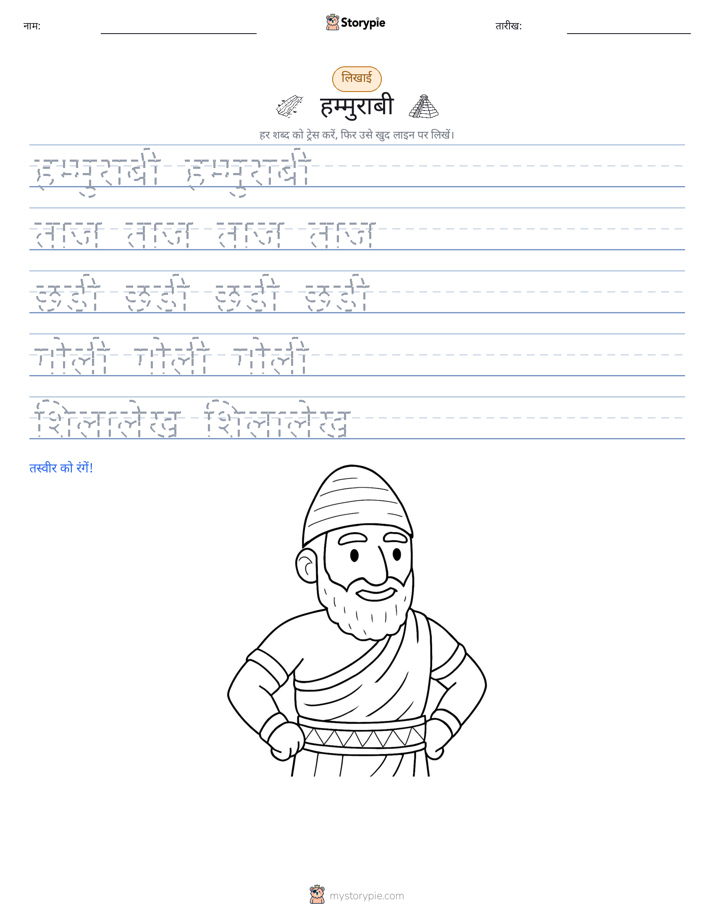 नाम:
Storypie
तारीख:
लिखाई
हम्मुराबी
हर शब्द को ट्रेस करें, फिर उसे खुद लाइन पर लिखें।
हम्मुराबी हम्मुराबी
ताज ताज ताज ताज
छड़ी छड़ी छड़ी छड़ी
गोली गोली गोली
शिलालेख शिलालेख
तस्वीर को रंगें!
mystorypie.com